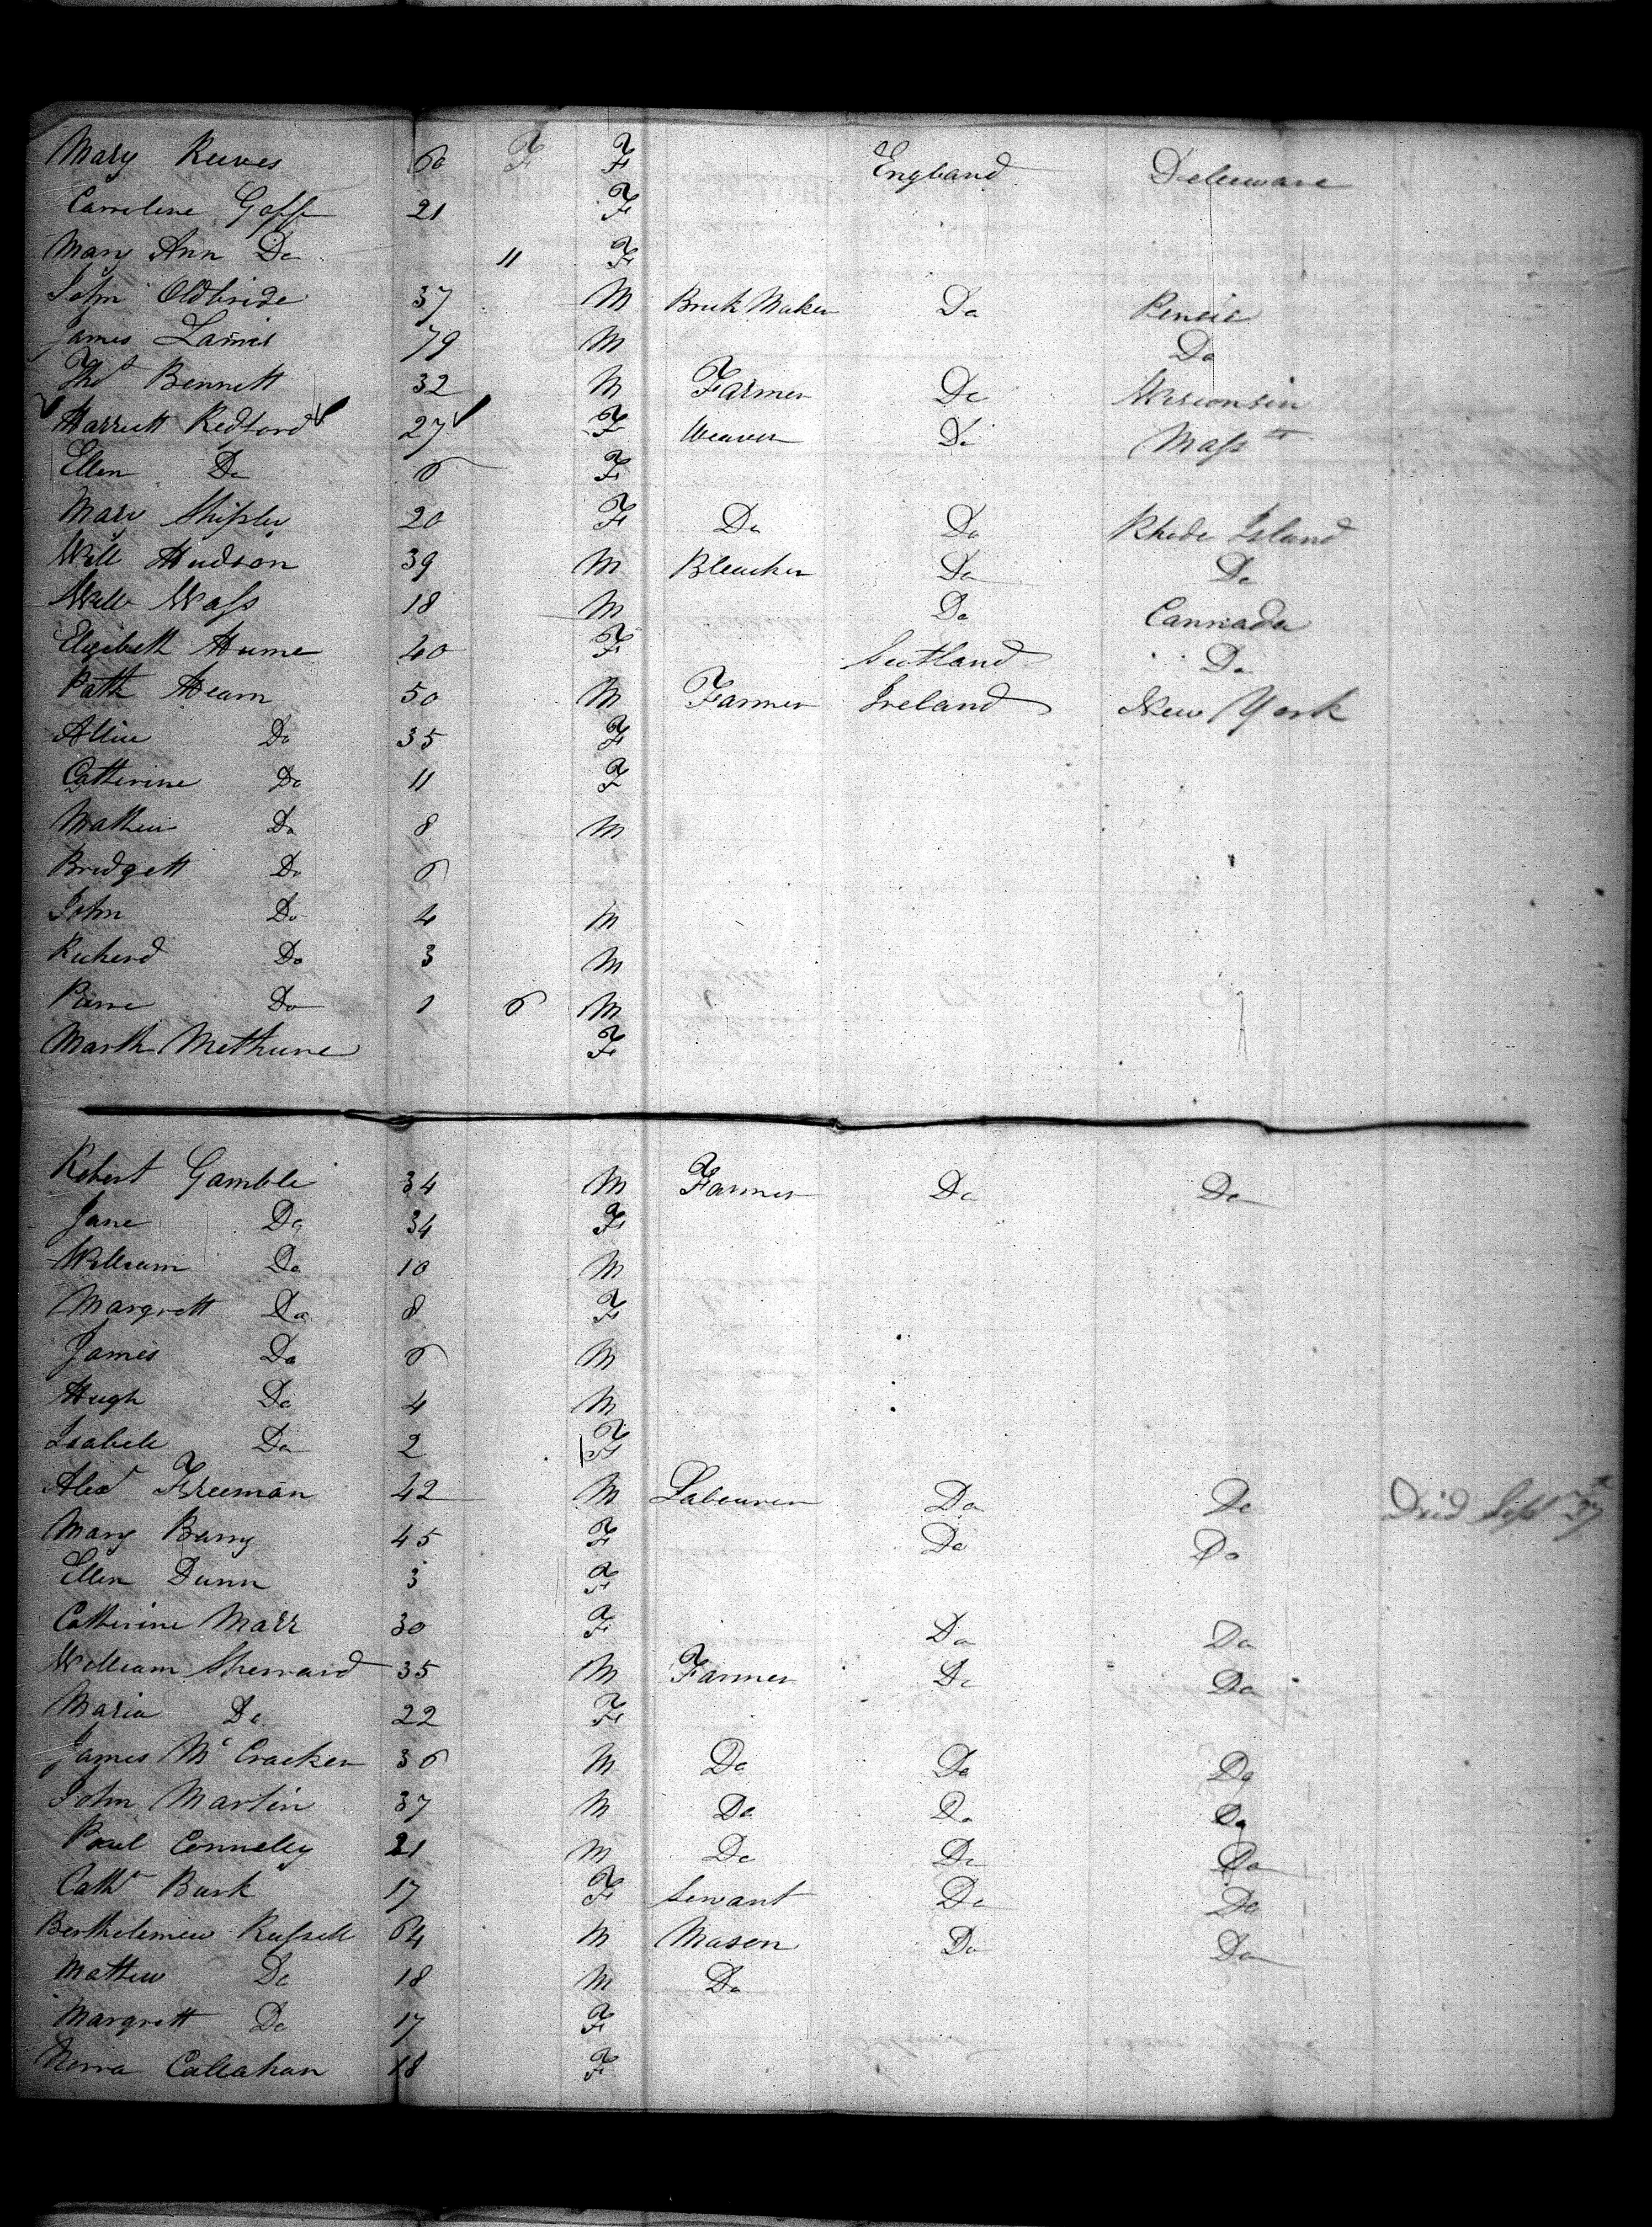 Mary Reeves 60 F F England Deleeware
Carroline Goff 21 F
Mary Ann Do 11 F
John Oldbride 37 M Brick Maker Do
James 79 M Do
Thos Bennett 32 M Farmer Do Wisconsin
Harriett Redford 27 F Weaver Do Mass
Ellen Do 6 F
Mary Shipley 20 F Do Do Rhode Island
Will Hudson 39 M Bleacher Do Do
Will Wass 18 M Do Cannada
Elizibeth Hume 40 F Scotland Do
Patk Hearn 50 M Farmer Ireland New York
Do 35 F
Catherine Do 11 F
Mathew Do 8 M
Bridgett Do 6
John Do 4 M
Richerd Do 3 M
Do 1 6 M
Marth Methune F
Robert Gamble 34 M Farmer Do Do
Jane Do 34 F
William Do 10 M
Margrett Do 8 F
James Do 6 M
Hugh Do 4 M
Isabele Do 2 F
Alexd Freeman 42 M Labourer Do Do Died Sept 27
Mary Barry 45 F Do Do
Ellen Dunn 3 F
Catherine Marr 30 F Do Do
William Sherrard 35 M Farmer Do Do
Maria Do 22 F
James McCracken 36 M Do Do Do
John Martin 37 M Do Do Do
Paul Connelly 21 M Do Do Do
Cathr Burk 17 F Servant Do Do
Bertholemew Russell 64 M Mason Do Do
Mathew Do 18 M Do
Margrett Do 17 F
Norra Callahan 18 F